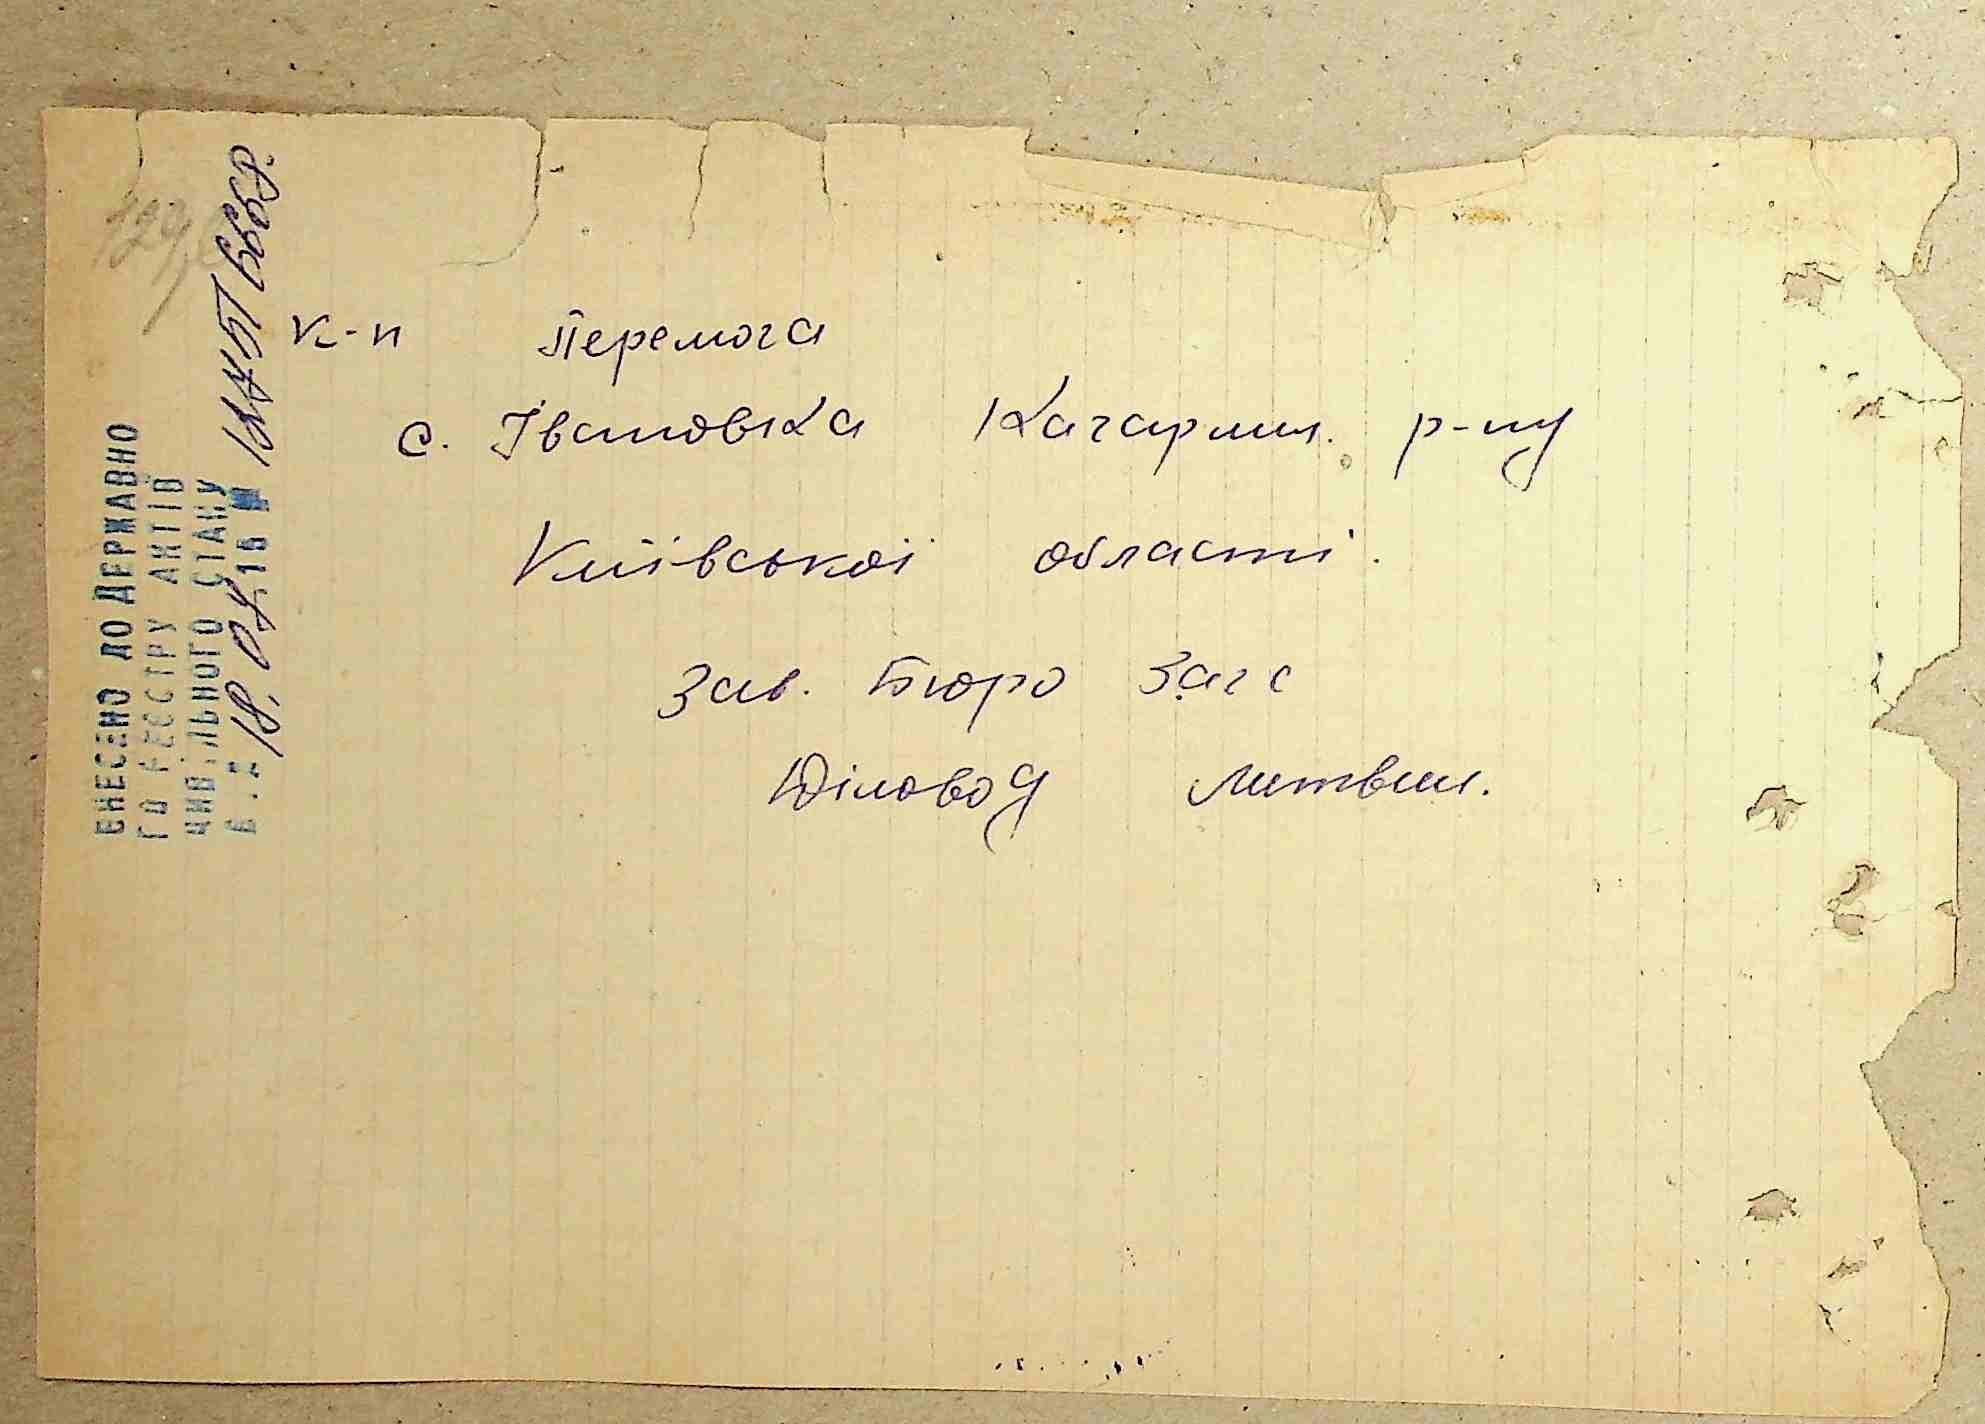 к-п Перемога
с. Івановка Кагарлик. р-ну
Київської області.
Зав. бюро Загс
Діловод Литвин.
ВНЕСЕНО ДО ДЕРЖАВНО
ГО РЕЄСТРУ АКТІВ
ЦИВІЛЬНОГО СТАНУ
18.04.16